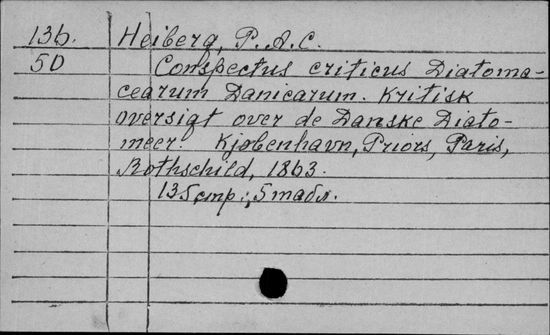 13b. Heiberg, P.A.C.
50 Conspectus criticus Diatoma-
cearum Danicarum. Kritisk
oversigt over de Danske Diato-
meer. Kjøbenhavn, Priors, Paris,
Rothschild, 1863.
135 стр.; 5 табл.